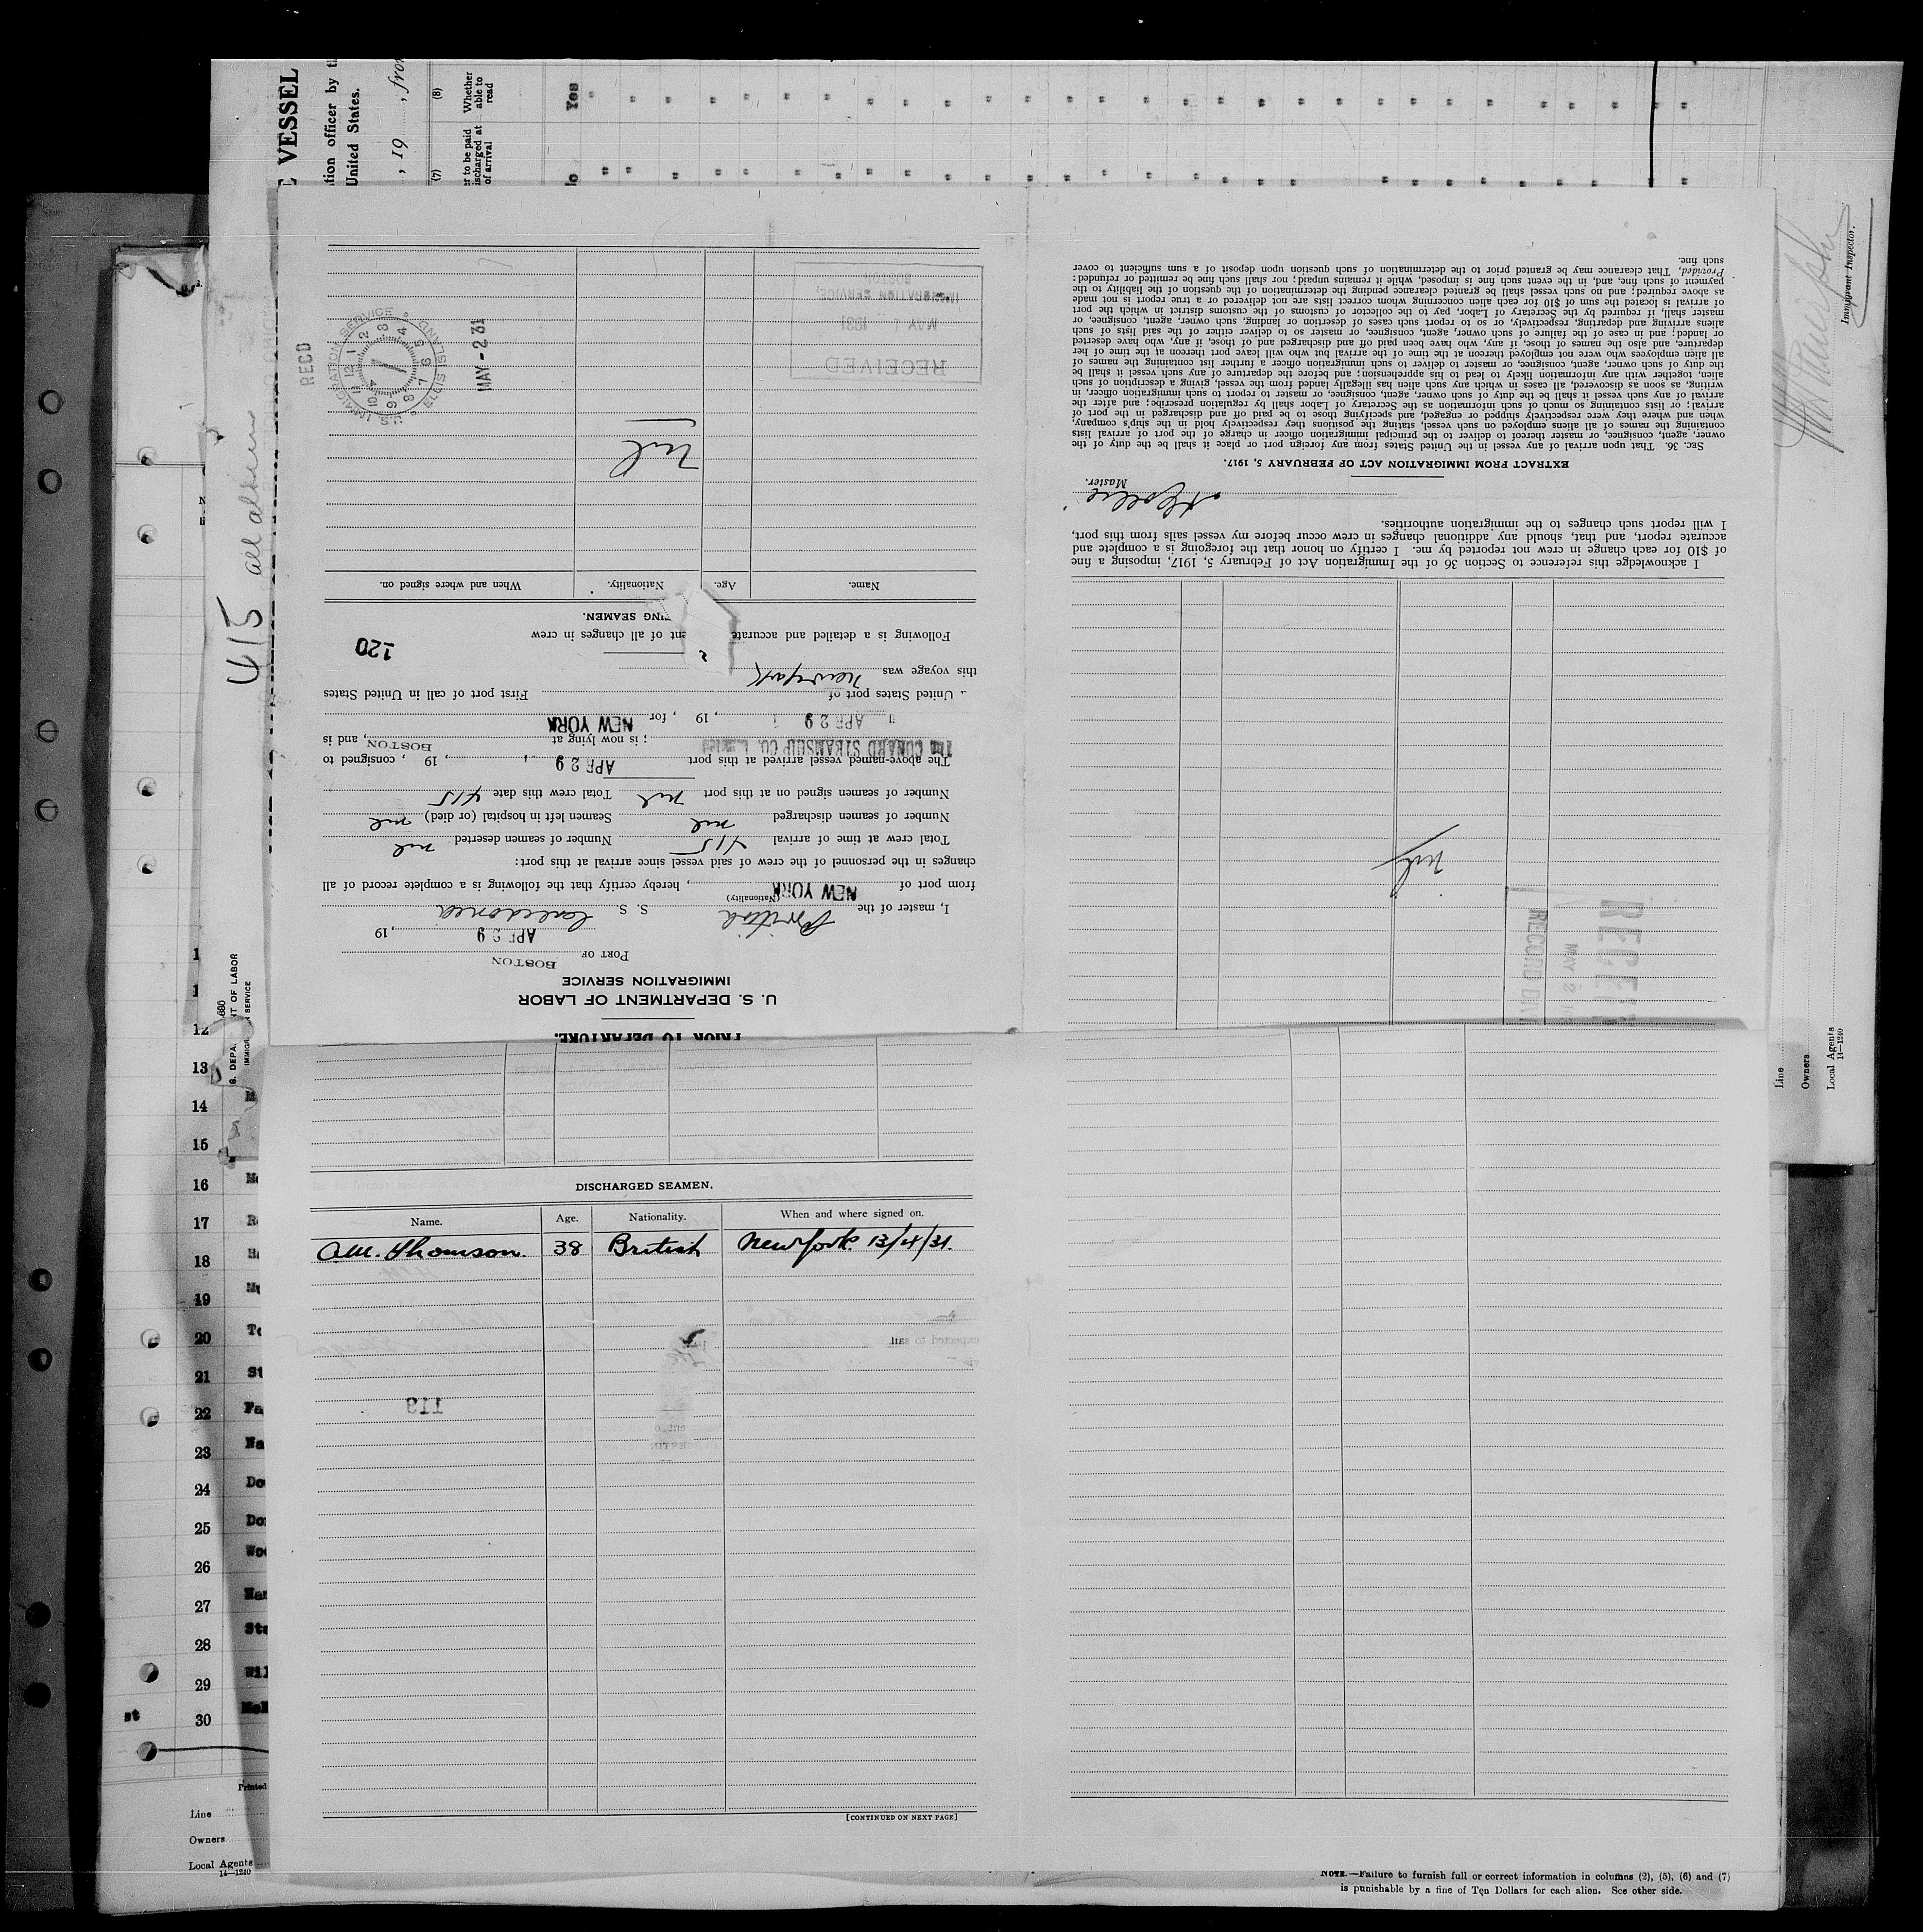 E VESSEL
tion officer by th
United States.
, 19 , from
(8)
Whether able to read
(7)
er to be paid
ischarged at
of arrival
Yes
Immigrant Inspector.
415 all aliens
PRIOR TO DEPARTURE.
U. S. DEPARTMENT OF LABOR
IMMIGRATION SERVICE
PORT OF BOSTON
APR 29 , 19
I, master of the British S. S. Caledonia
(Nationality)
from port of NEW YORK , hereby certify that the following is a complete record of all
changes in the personnel of the crew of said vessel since arrival at this port:
Total crew at time of arrival 415 Number of seamen deserted nil
Number of seamen discharged nil Seamen left in hospital (or died) nil
Number of seamen signed on at this port nil Total crew this date 415
The above-named vessel arrived at this port APR 29 , 19 , consigned to
The CUNARD STEAMSHIP CO. Limited ; is now lying at BOSTON , and is
APR 29 , 19 , for NEW YORK
United States port of First port of call in United States
this voyage was New York
120
Following is a detailed and accurate ent of all changes in crew
ING SEAMEN.
Name. Age. Nationality. When and where signed on.
Nil
RECEIVED
MAY 1 1931
IMMIGRATION SERVICE
BOSTON
MAY - 2 31
RECD
U.S. IMMIGRATION SERVICE ELLIS ISLAND
RECORD DIV
MAY 2
Nil
I acknowledge this reference to Section 36 of the Immigration Act of February 5, 1917, imposing a fine
of $10 for each change in crew not reported by me. I certify on honor that the foregoing is a complete and
accurate report, and that, should any additional changes in crew occur before my vessel sails from this port,
I will report such changes to the immigration authorities.
Master.
EXTRACT FROM IMMIGRATION ACT OF FEBRUARY 5, 1917.
SEC. 36. That upon arrival of any vessel in the United States from any foreign port or place it shall be the duty of the
owner, agent, consignee, or master thereof to deliver to the principal immigration officer in charge of the port of arrival lists
containing the names of all aliens employed on such vessel, stating the positions they respectively hold in the ship's company,
when and where they were respectively shipped or engaged, and specifying those to be paid off and discharged in the port of
arrival; or lists containing so much of such information as the Secretary of Labor shall by regulation prescribe; and after the
arrival of any such vessel it shall be the duty of such owner, agent, consignee, or master to report to such immigration officer, in
writing, as soon as discovered, all cases in which any such alien has illegally landed from the vessel, giving a description of such
alien, together with any information likely to lead to his apprehension; and before the departure of any such vessel it shall be
the duty of such owner, agent, consignee, or master to deliver to such immigration officer a further list containing the names of
all alien employees who were not employed thereon at the time of the arrival but who will leave port thereon at the time of her
departure, and also the names of those, if any, who have been paid off and discharged and of those, if any, who have deserted
or landed; and in case of the failure of such owner, agent, consignee, or master so to deliver either of the said lists of such
aliens arriving and departing, respectively, or so to report such cases of desertion or landing, such owner, agent, consignee, or
master, shall, if required by the Secretary of Labor, pay to the collector of customs of the customs district in which the port
of arrival is located the sum of $10 for each alien concerning whom correct lists are not delivered or a true report is not made
as above required; and no such vessel shall be granted clearance pending the determination of the question of the liability to the
payment of such fine, and, in the event such fine is imposed, while it remains unpaid; nor shall such fine be remitted or refunded:
Provided, That clearance may be granted prior to the determination of such question upon deposit of a sum sufficient to cover
such fine.
DISCHARGED SEAMEN.
Name. Age. Nationality. When and where signed on.
A.M. Thomson. 38 British New York. 13/4/31.
[CONTINUED ON NEXT PAGE]
12
13
14
15
16
17
18
19
20
21
22
23
24
25
26
27
28
29
30
Printed
Line
Owners
Local Agents
14—1240
Line
Owners
Local Agents
14—1240
NOTE.—Failure to furnish full or correct information in columns (2), (5), (6) and (7)
is punishable by a fine of Ten Dollars for each alien. See other side.